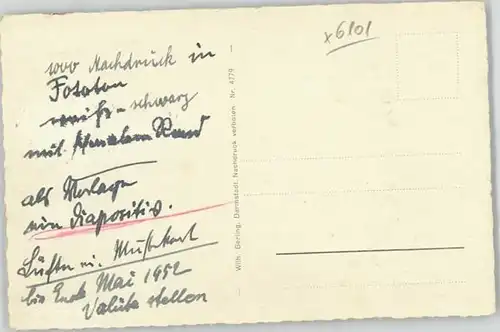 x6101
1000 Nachdruck in
Fototon
weiß - schwarz
mit schmalem Rand
als Vorlage
ein Diapositiv.
Mustkart
bis Ende Mai 1952
Wilh. Gerling, Darmstadt Nachdruck verboten Nr. 4779